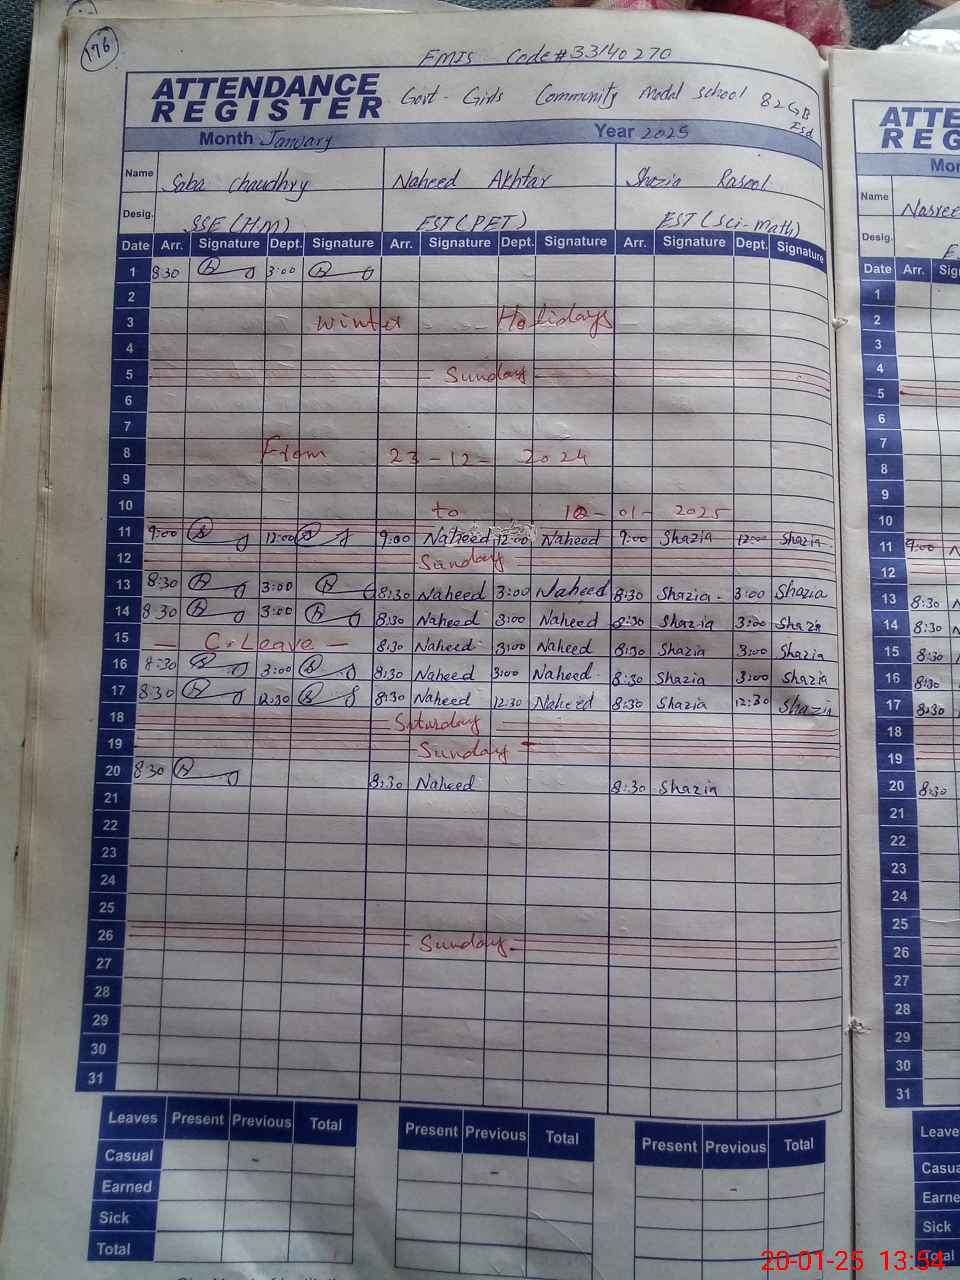 176
EMIS Code # 33140270
ATTENDANCE REGISTER Govt. Girls Community model school 82 GB Fsd
Month January Year 2025
Name Saba Chaudhry Naheed Akhtar Shazia Rasool
Desig. SSE (HM) EST (PET) EST (Sci-math)
Date Arr. Signature Dept. Signature Arr. Signature Dept. Signature Arr. Signature Dept. Signature
1 8:30 3:00
2
3 Winter Holidays
4
5 Sunday
6
7
8 From 23-12-2024
9
10 to 10-01-2025
11 9:00 12:00 9:00 Naheed 12:00 Naheed 9:00 Shazia 12:00 Shazia
12 Sunday
13 8:30 3:00 8:30 Naheed 3:00 Naheed 8:30 Shazia 3:00 Shazia
14 8:30 3:00 8:30 Naheed 3:00 Naheed 8:30 Shazia 3:00 Shazia
15 - C.Leave - 8:30 Naheed 3:00 Naheed 8:30 Shazia 3:00 Shazia
16 8:30 3:00 8:30 Naheed 3:00 Naheed 8:30 Shazia 3:00 Shazia
17 8:30 12:30 8:30 Naheed 12:30 Naheed 8:30 Shazia 12:30 Shazia
18 Saturday
19 Sunday
20 8:30 8:30 Naheed 8:30 Shazia
21
22
23
24
25
26 Sunday
27
28
29
30
31
Leaves Present Previous Total Present Previous Total Present Previous Total
Casual - - -
Earned
Sick
Total
ATTE
REG
Mon
Name Nasree
Desig. E
Date Arr. Sig
1
2
3
4
5
6
7
8
9
10
11 9:00 N
12
13 8:30 N
14 8:30 N
15 8:30 N
16 8:30 N
17 8:30 N
18
19
20 8:30 N
21
22
23
24
25
26
27
28
29
30
31
Leave
Casua
Earne
Sick
Total
20-01-25 13:54